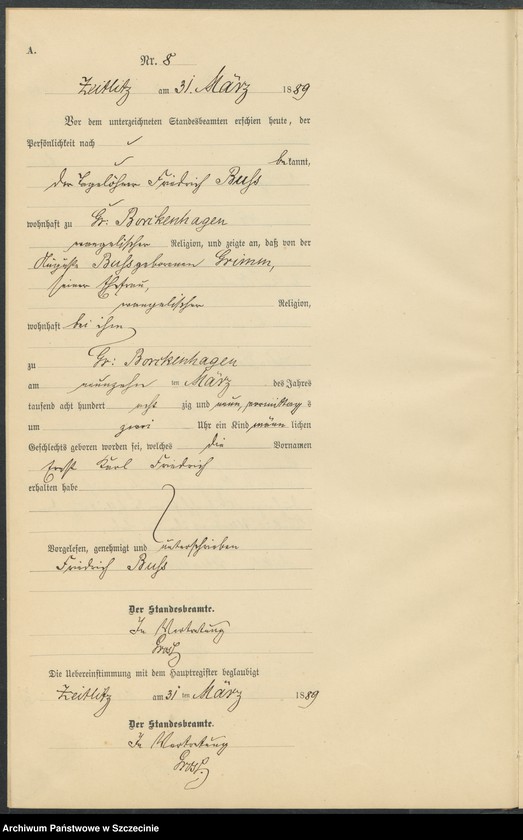 A.
Nr. 8
Zeitlitz am 31. März 1889
Vor dem unterzeichneten Standesbeamten erschien heute, der
Persönlichkeit nach
bekannt,
der Tagelöhner Fridrich Buss
wohnhaft zu Gr: Borckenhagen
evangelischer Religion, und zeigte an, daß von der
Auguste Buss geborenen Grimm,
seiner Ehefrau,
evangelischer Religion,
wohnhaft bei ihm
zu Gr: Borckenhagen
am neunzehn ten März des Jahres
tausend acht hundert acht zig und neun, vormittags
um zwei Uhr ein Kind männlichen
Geschlechts geboren worden sei, welches die Vornamen
Ernst Karl Friedrich
erhalten habe
Vorgelesen, genehmigt und unterschrieben
Fridrich Buss
Der Standesbeamte.
In Vertretung
Die Uebereinstimmung mit dem Hauptregister beglaubigt
Zeitlitz am 31 ten März 1889
Der Standesbeamte.
In Vertretung
Archiwum Państwowe w Szczecinie